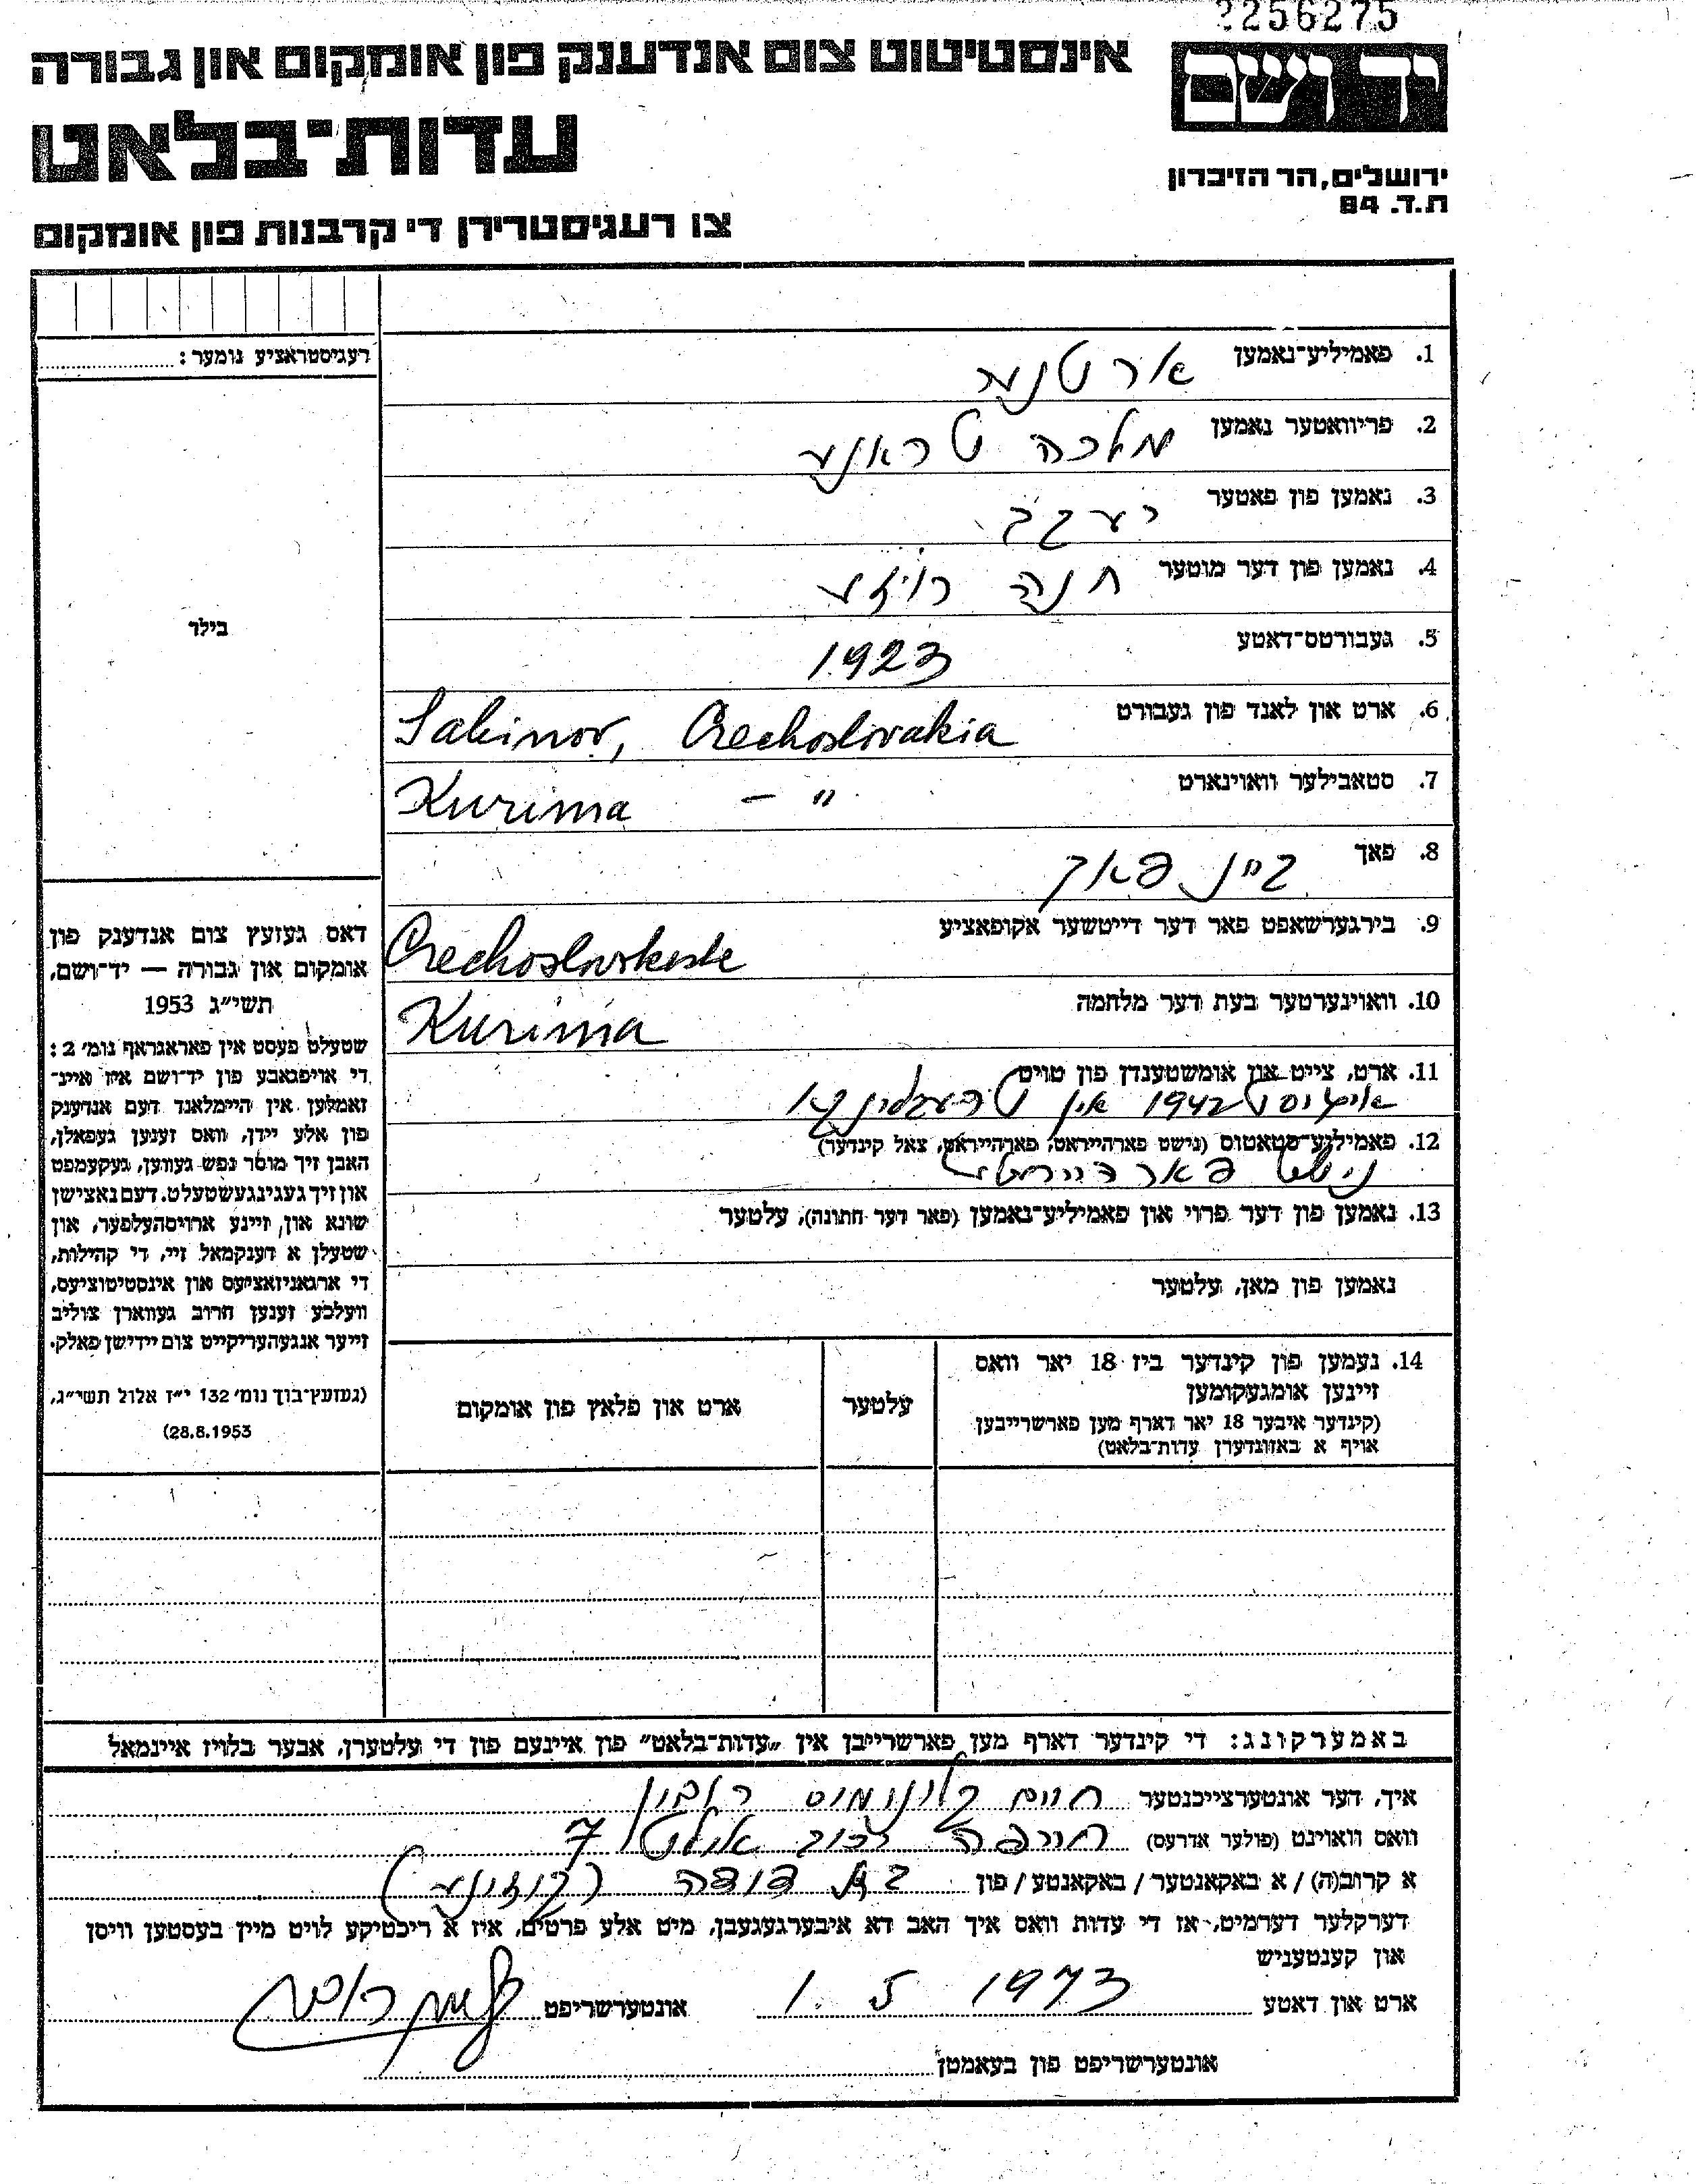 2256275
יד ושם
אינסטיטוט צום אנדענק פון אומקום און גבורה
עדות־בלאט
צו רעגיסטרירן די קרבנות פון אומקום
ירושלים, הר הזיכרון
ת.ד. 84
רעגיסטראציע נומער:
בילד
1. פאמיליע־נאמען ארטנר
2. פריוואטער נאמען מלכה טראנע
3. נאמען פון פאטער יעקב
4. נאמען פון דער מוטער חנה רויזע
5. געבורטס־דאטע 1923
6. ארט און לאנד פון געבורט Sabinov, Czechoslovakia
7. סטאבילער וואוינארט Kurima — "
8. פאך קיין פאך
9. בירגערשאפט פאר דער דייטשער אקופאציע
10. וואוינערטער בעת דער מלחמה Kurima
11. ארט, צייט און אומשטענדן פון טויט
1942 אין טרעבלינקא
12. פאמיליע־סטאטוס (נישט פארהייראט, פארהייראט, צאל קינדער)
נישט פארהייראט
13. נאמען פון דער פרוי און פאמיליע־נאמען (פאר דער חתונה), עלטער
נאמען פון מאן, עלטער
14. נעמען פון קינדער ביז 18 יאר וואס
זיינען אומגעקומען
(קינדער איבער 18 יאר דארף מען פארשרייבן
אויף א באזונדערן עדות־בלאט)
עלטער
ארט און פלאץ פון אומקום
דאס געזעץ צום אנדענק פון
אומקום און גבורה — יד־ושם,
תשי״ג 1953
שטעלט פעסט אין פאראגראף נומ׳ 2:
די אויפגאבע פון יד־ושם איז איינ־
זאמלען אין היימלאנד דעם אנדענק
פון אלע יידן, וואס זענען געפאלן,
האבן זיך מוסר נפש געווען, געקעמפט
און זיך געגינגעשטעלט. דעם נאצישן
שונא און זיינע ארויסהעלפער, און
שטעלן א דענקמאל זיי, די קהילות,
די ארגאניזאציעס און אינסטיטוציעס,
וועלכע זענען חרוב געווארן צוליב
זייער אנגעהעריקייט צום יידישן פאלק.
(געזעץ־בוך נומ׳ 132 י״ז אלול תשי״ג,
28.8.1953)
באמערקונג: די קינדער דארף מען פארשרייבן אין „עדות־בלאט״ פון איינעם פון די עלטערן, אבער בלויז איינמאל
איך, דער אונטערצייכנטער חיים קלונומוס רובין
וואס וואוינט (פולער אדרעס) חיפה רחוב אילת 7
א קרוב(ה) / א באקאנטער / באקאנטע / פון בת דודה (קוזינע)
דערקלער דערמיט, אז די עדות וואס איך האב דא איבערגעגעבן, מיט אלע פרטים, איז א ריכטיקע לויט מיין בעסטען וויסן
און קענטעניש
ארט און דאטע 1. 5 1973 אונטערשריפט
אונטערשריפט פון בעאמטן